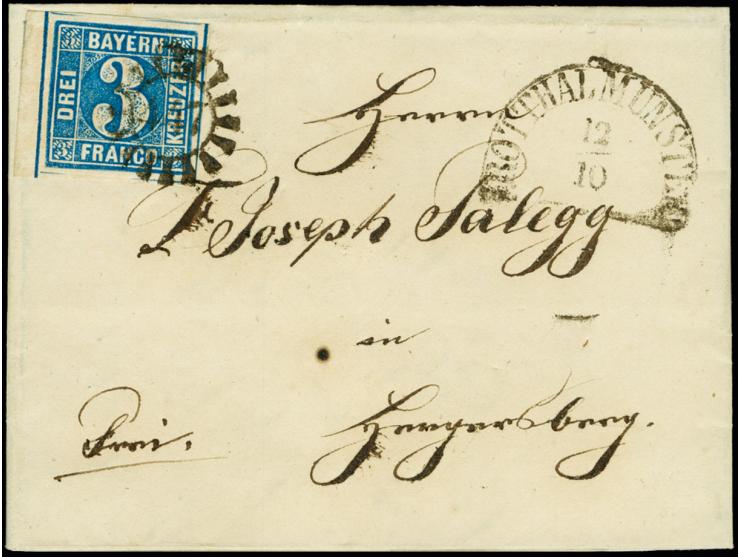 BAYERN
DREI 3 KREUZER
FRANCO
ROTTHALMÜNSTER
12
10
Herrn
Joseph Salegg
in
Hergersberg.
Frei.